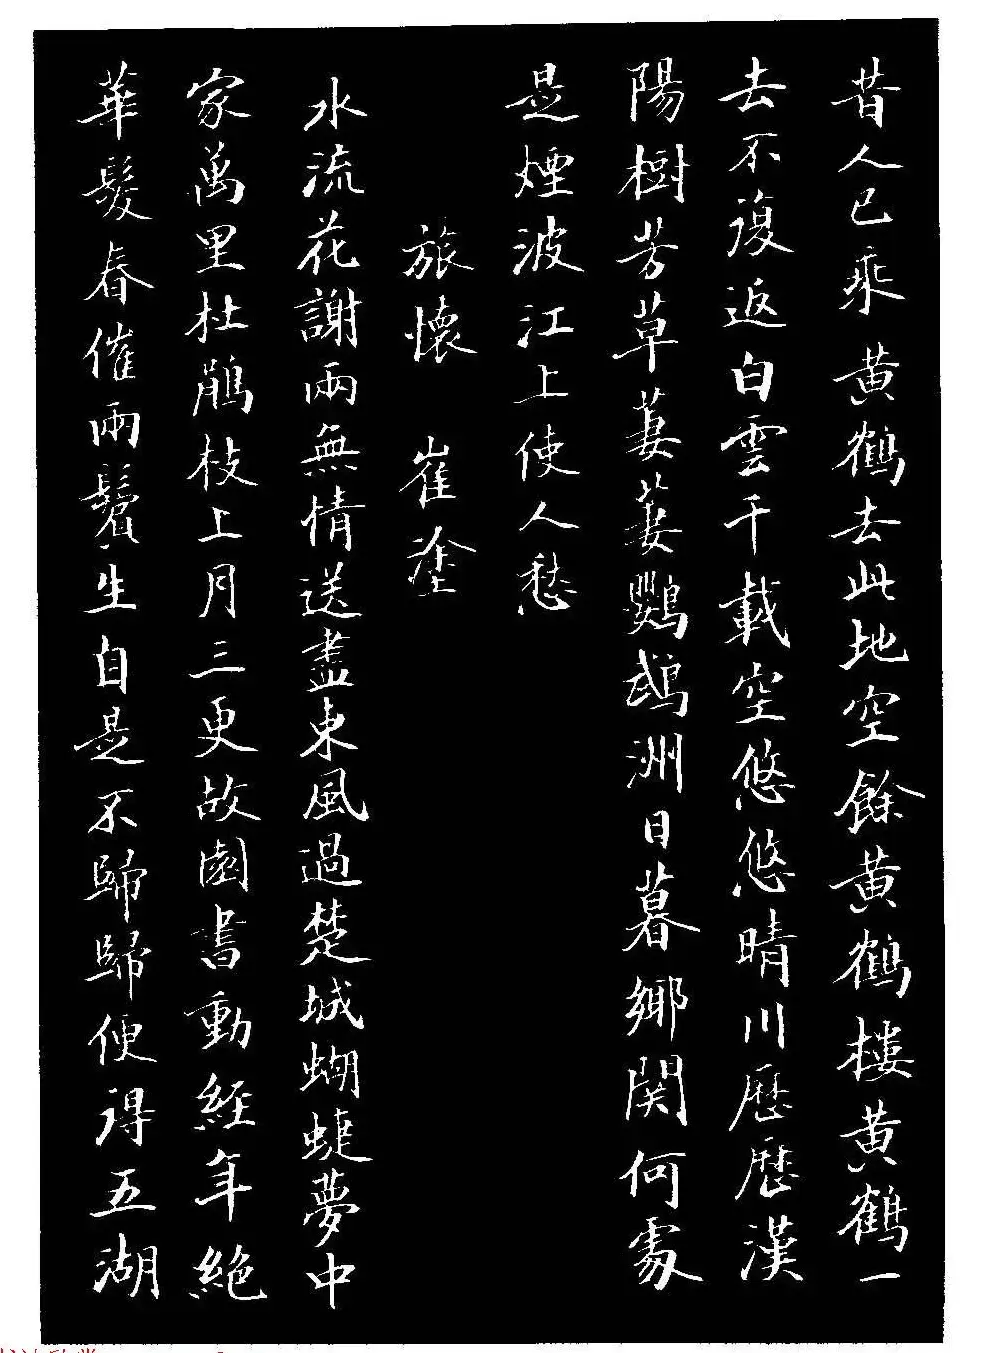 昔人已乘黄鶴去此地空餘黄鶴樓黄鶴一
去不復返白雲千載空悠悠晴川歷歷漢
陽樹芳草萋萋鸚鵡洲日暮鄉関何處
是煙波江上使人愁
旅懷 崔塗
水流花謝兩無情送盡東風過楚城蝴蝶夢中
家萬里杜鵑枝上月三更故園書動經年絕
華髮春催兩鬢生自是不歸歸便得五湖